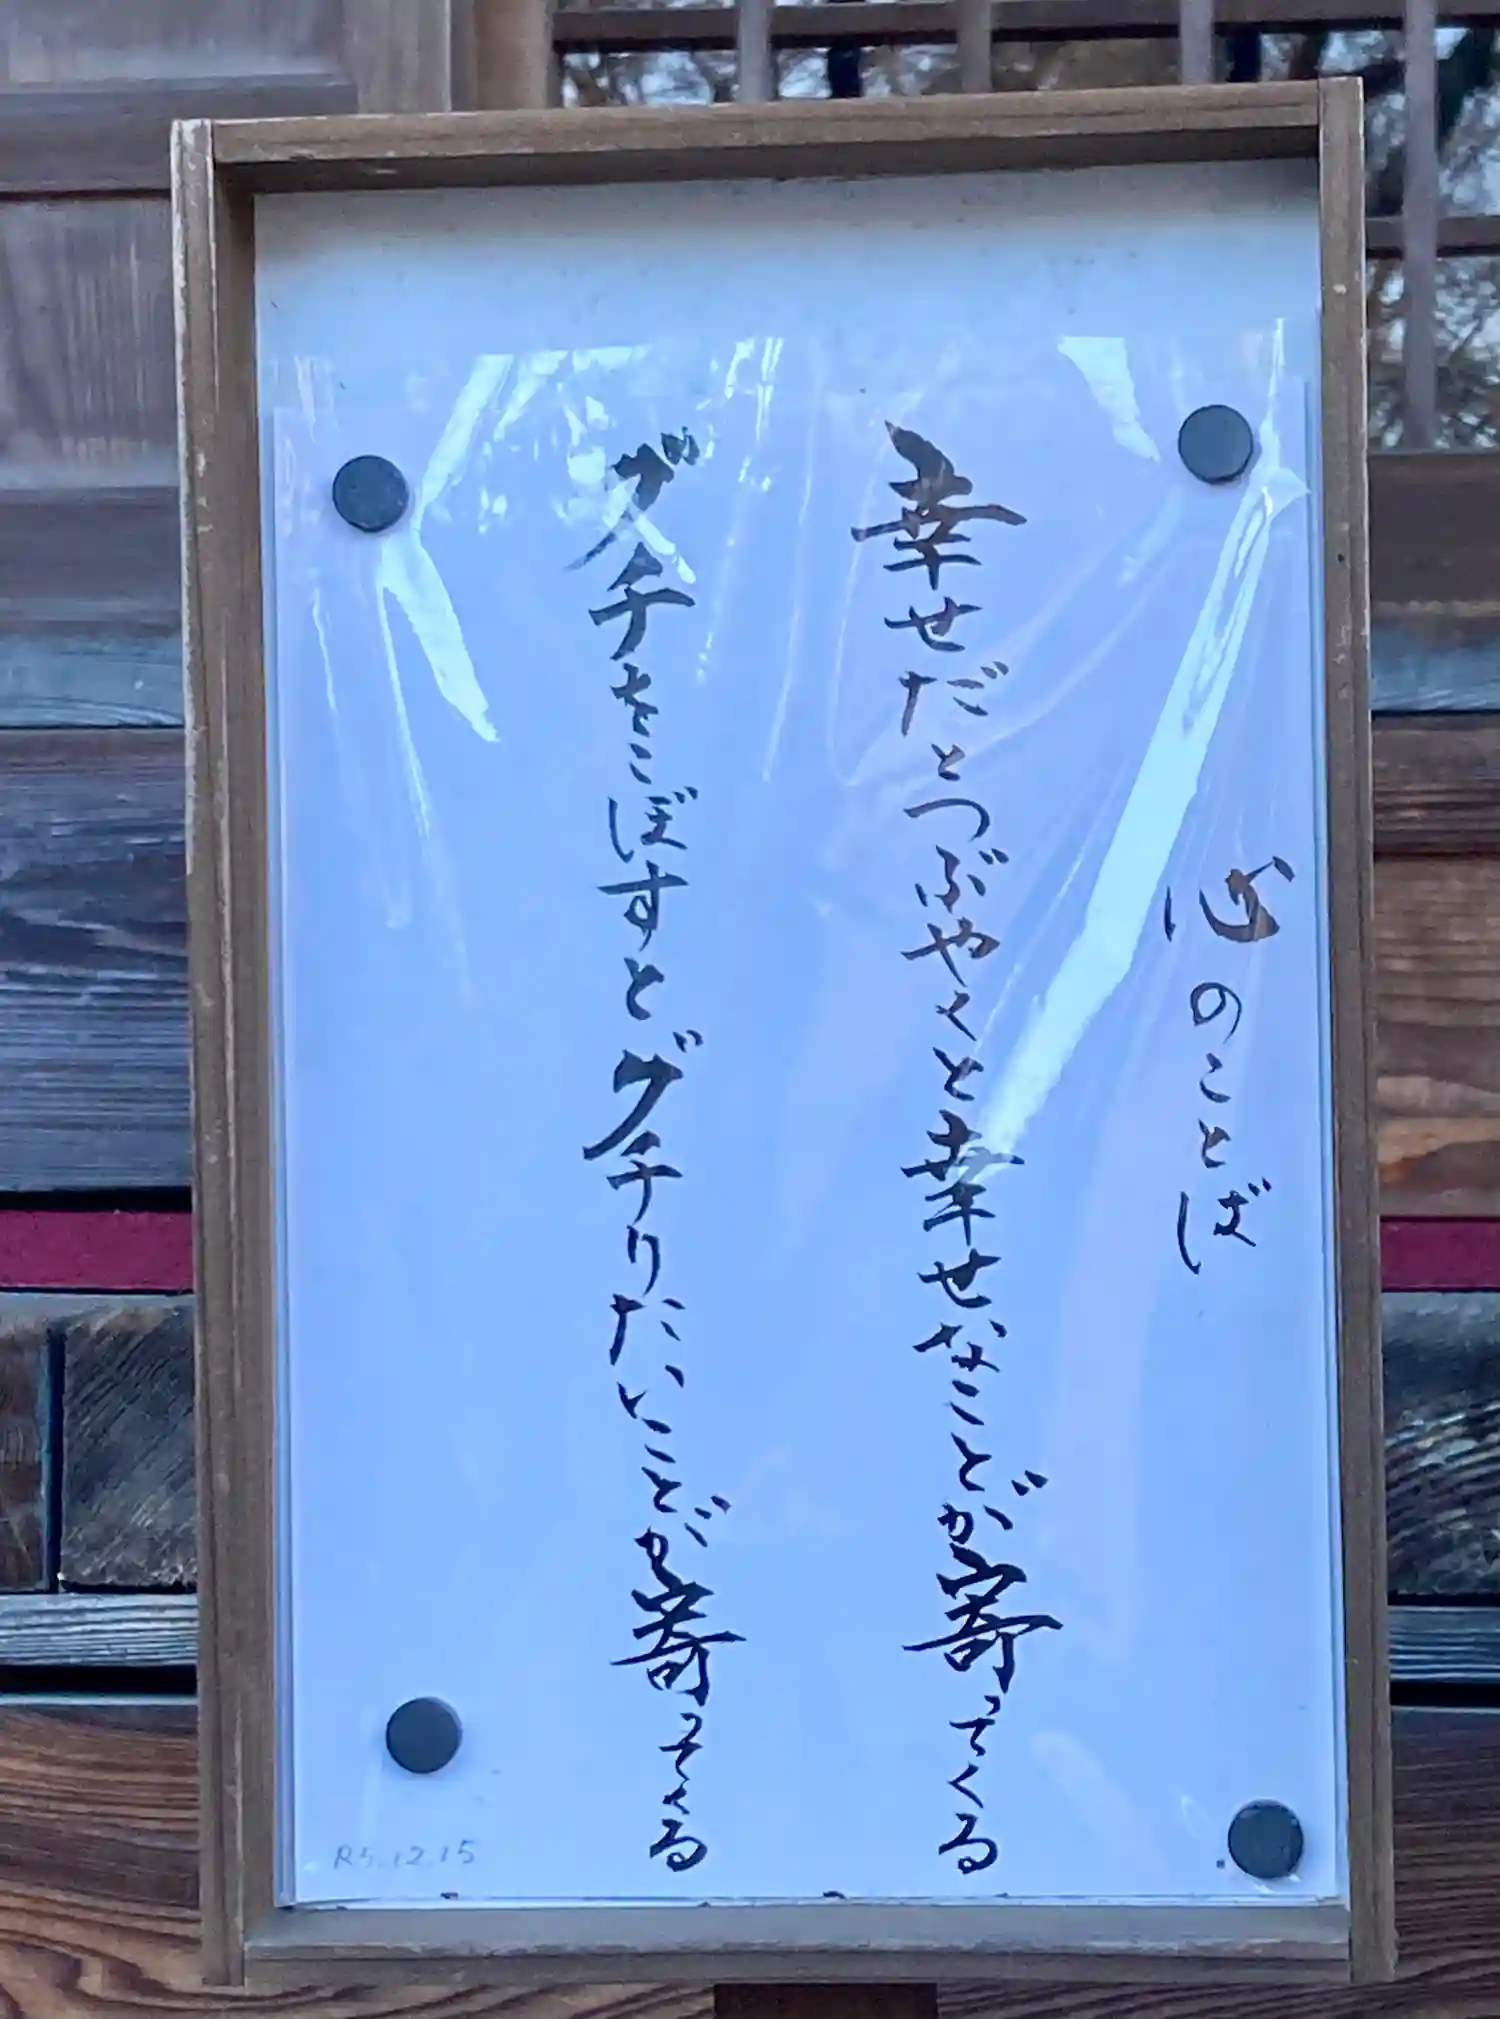 心のことば
幸せだとつぶやくと幸せなことが寄ってくる
グチをこぼすとグチりたいことが寄ってくる
R5.12.15